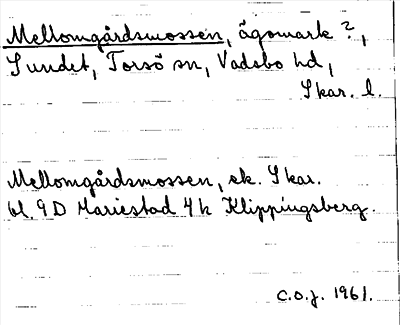 Mellomgårdsmossen, ägomark?,
Sundet, Torsö sn, Vadsbo hd,
Skar. l.
Mellomgårdsmossen, ek. Skar.
bl. 9D Mariestad 4k Klippingsberg.
C.O.J. 1961.